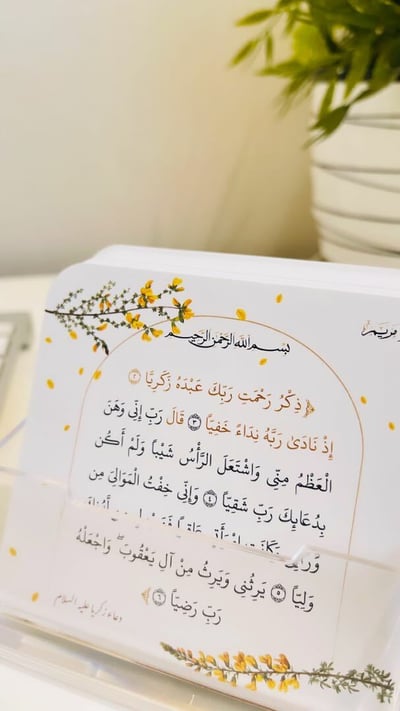 مريم
بسم الله الرحمن الرحيم
﴿ذِكْرُ رَحْمَتِ رَبِّكَ عَبْدَهُ زَكَرِيَّا ٢
إِذْ نَادَىٰ رَبَّهُ نِدَاءً خَفِيًّا ٣ قَالَ رَبِّ إِنِّي وَهَنَ
الْعَظْمُ مِنِّي وَاشْتَعَلَ الرَّأْسُ شَيْبًا وَلَمْ أَكُن
بِدُعَائِكَ رَبِّ شَقِيًّا ٤ وَإِنِّي خِفْتُ الْمَوَالِيَ مِن
وَلِيًّا ٥ يَرِثُنِي وَيَرِثُ مِنْ آلِ يَعْقُوبَ ۖ وَاجْعَلْهُ
رَبِّ رَضِيًّا ٦﴾
دعاء زكريا عليه السلام